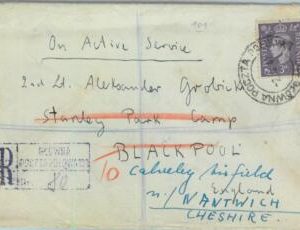 101
On Active Service
2nd Lt. Aleksander Grobicki
Stanley Park Camp
BLACKPOOL
TO Calveley Airfield
England
nr/ NANTWICH
CHESHIRE.
R
GŁÓWNA
POCZTA POLOWA
80
GŁÓWNA POCZTA